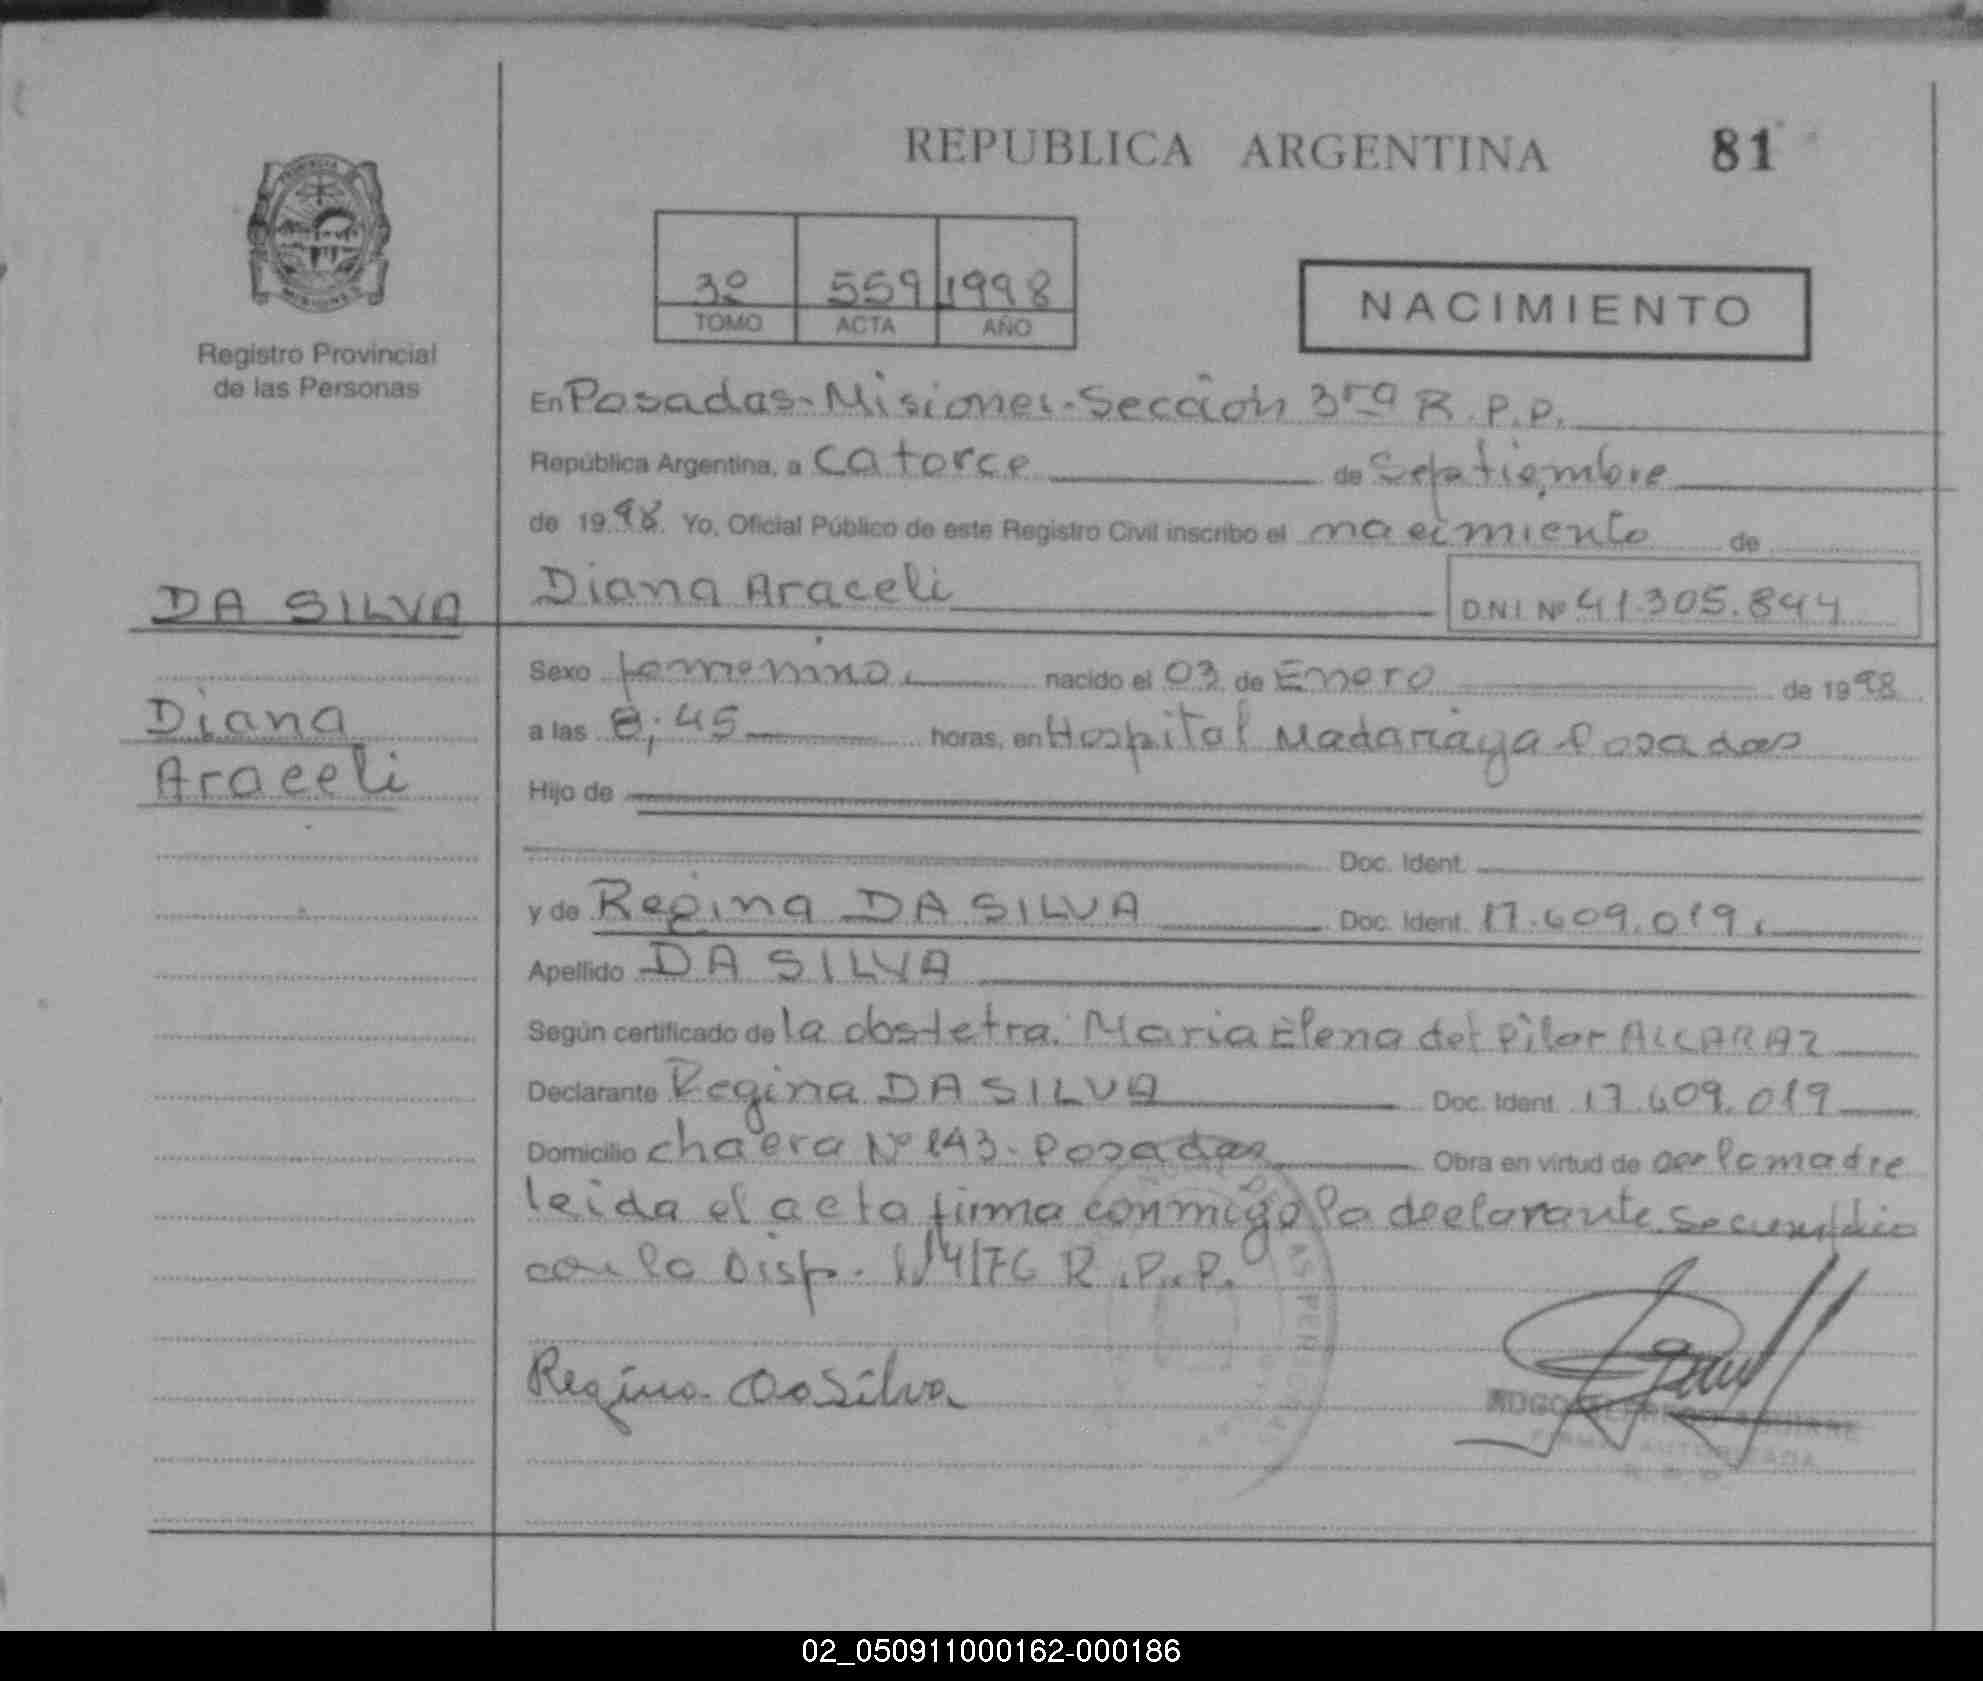 REPUBLICA ARGENTINA 81
3º 559 1998
TOMO ACTA AÑO
NACIMIENTO
Registro Provincial
de las Personas
En Posadas-Misiones-Sección 3ra R.P.P.
República Argentina, a Catorce de Septiembre
de 1998 Yo, Oficial Público de este Registro Civil inscribo el nacimiento de
DA SILVA Diana Araceli D.N.I. Nº 41.305.844
Sexo femenino nacido el 03 de Enero de 1998
Diana
a las 8:45 horas, en Hospital Madariaga Posadas
Araceli
Hijo de
Doc. Ident.
y de Regina DA SILVA Doc. Ident. 17.609.019
Apellido DA SILVA
Según certificado de la obstetra. Maria Elena del Pilar ALCARAZ
Declarante Regina DA SILVA Doc. Ident. 17.609.019
Domicilio chacra Nº 143-Posadas Obra en virtud de ser la madre
leida el acta firma conmigo la declarante
con la Disp. R.P.P.
Regina Da Silva
AGUIRRE
FIRMA AUTORIZADA
02_050911000162-000186